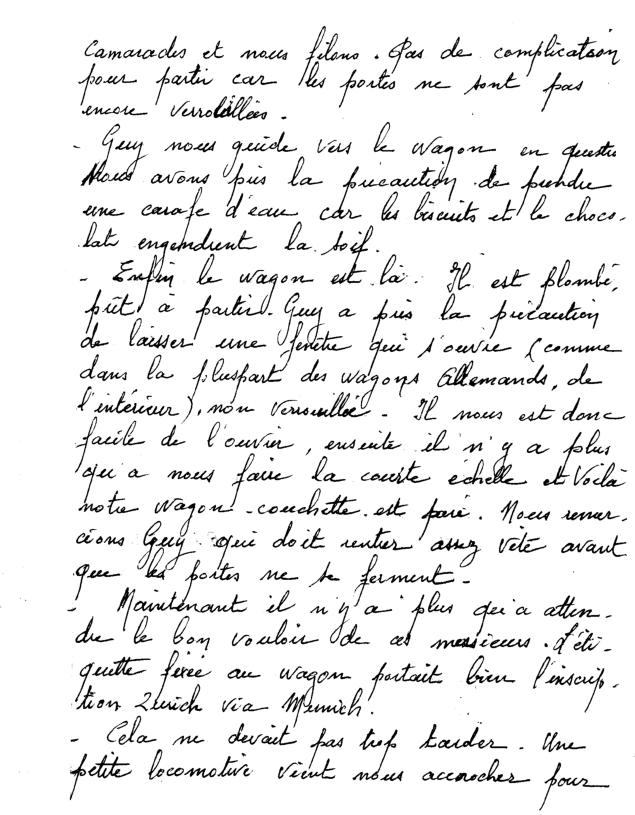 Camarades et nous filons. Pas de complication
pour partir car les portes ne sont pas
encore verrouillées.
- Guy nous guide vers le wagon en question
Nous avons pris la précaution de prendre
une carafe d'eau car les biscuits et le choco-
lat engendrent la soif.
- Enfin le wagon est là. Il est plombé,
prêt à partir. Guy a pris la précaution
de laisser une fenêtre qui s'ouvre (comme
dans la pluspart des wagons Allemands, de
l'intérieur), non verrouillée. Il nous est donc
facile de l'ouvrir, ensuite il n'y a plus
qu'a nous faire la courte échelle et Voilà
notre wagon-couchette est paré. Nous remer-
cions Guy qui doit rentrer assez vite avant
que les portes ne se ferment.
- Maintenant il n'y a plus qu'a atten-
dre le bon vouloir de ces messieurs. L'éti-
quette fixée au wagon portait bien l'inscrip-
tion Zurich via Munich.
- Cela ne devait pas trop tarder. Une
petite locomotive vient nous accrocher pour